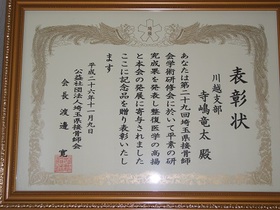 表彰状
川越支部
寺嶋竜太 殿
あなたは第二十九回埼玉県接骨師
会学術研修会に於いて平素の研
究成果を発表し整復医学の高揚
と本会の発展に寄与されました
ここに記念品を贈り表彰いたし
ます
平成二十六年十一月九日
公益社団法人埼玉県接骨師会
会長 渡邊 寛